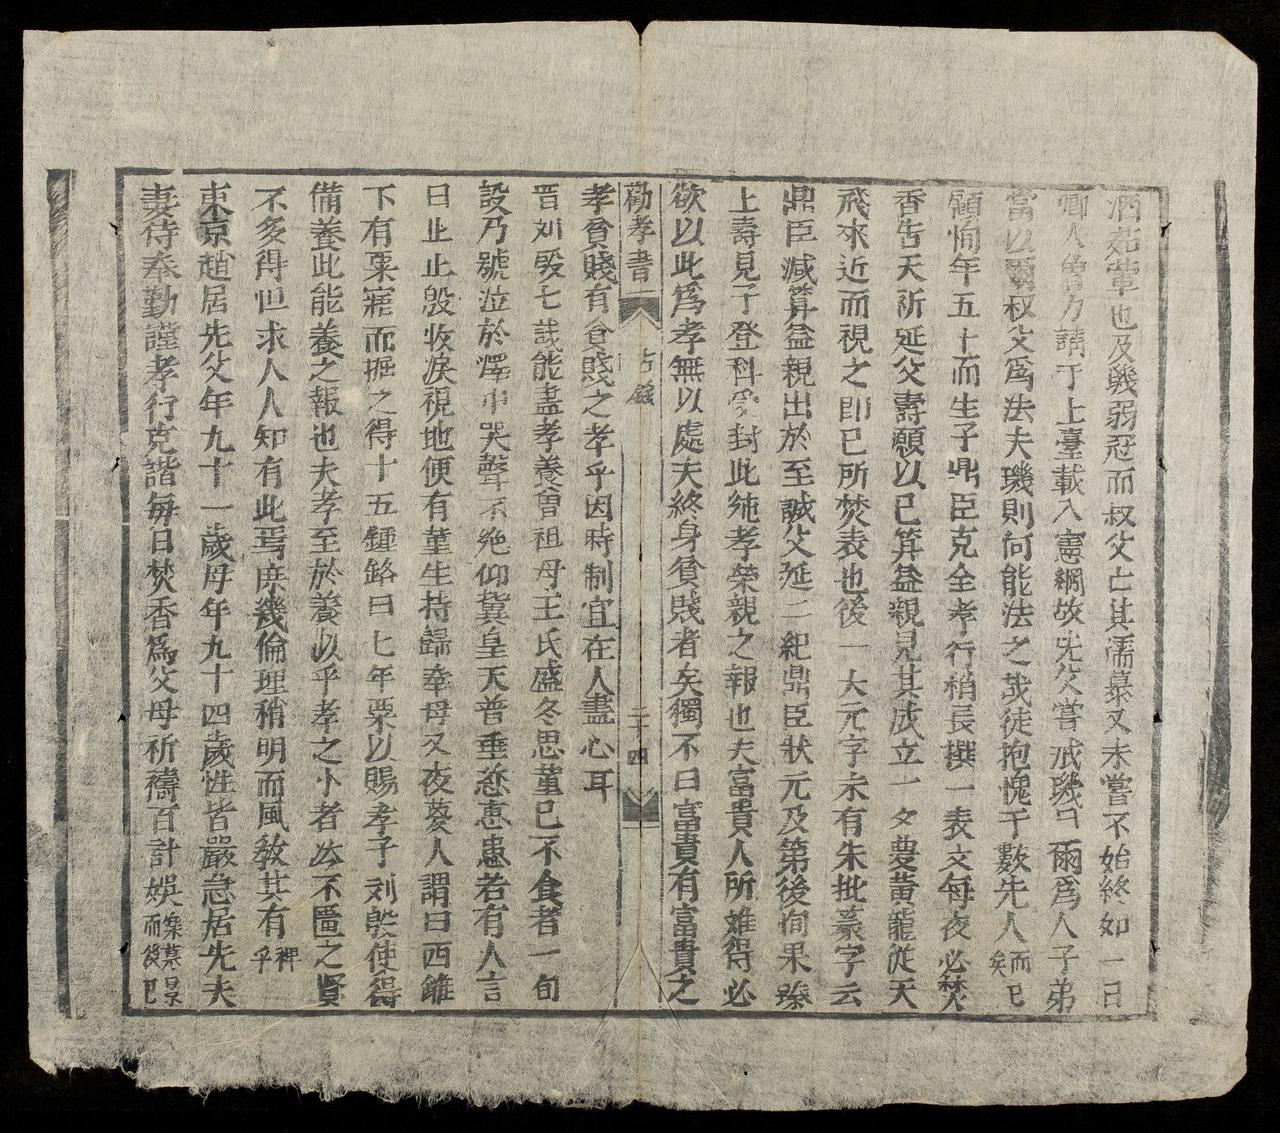 酒茹葷也及璣弱冠而叔父亡其孺慕又未嘗不始終如一日
鄉人會力請于上臺載入憲綱故先父嘗戒璣曰爾爲人子弟
當以爾叔父爲法夫璣則何能法之哉徒抱愧于數先人而已矣
顧恂年五十而生子鼎臣克全孝行稍長撰一表文每夜必焚
香告天祈延父壽願以己算益親見其成立一夕夢黃龍從天
飛來近而視之即已所焚表也後一大元字未有朱批篆字云
鼎臣減算益親出於至誠父延二紀鼎臣狀元及第後恂果臻
上壽見子登科受封此純孝榮親之報也夫富貴人所難得必
欲以此爲孝無以處夫終身貧賤者矣獨不曰富貴有富貴之
勸孝書一 二十四
孝貧賤有貧賤之孝乎因時制宜在人盡心耳
晉刘殷七歲能盡孝養曾祖母王氏盛冬思菫已不食者一旬
設乃號泣於澤中哭聲不絕仰冀皇天普垂慈惠患若有人言
曰止止殷收淚視地便有菫生持歸奉母又夜夢人謂曰西籬
下有粟寤而掘之得十五鍾銘曰七年粟以賜孝子刘殷使得
備養此能養之報也夫孝至於養以乎孝之小者然不匱之賢
不多得但求人人知有此焉庶幾倫理稍明而風敎其有裨乎
東京趙居先父年九十一歲母年九十四歲性皆嚴急居先夫
妻待奉勤謹孝行克諧每日焚香爲父母祈禱百計娛集慕景而後已